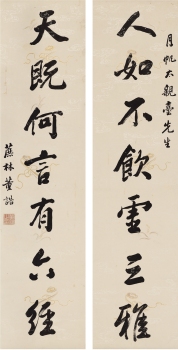 月帆太親臺先生
人如不飲虛三雅
天既何言有六經
蔗林董誥